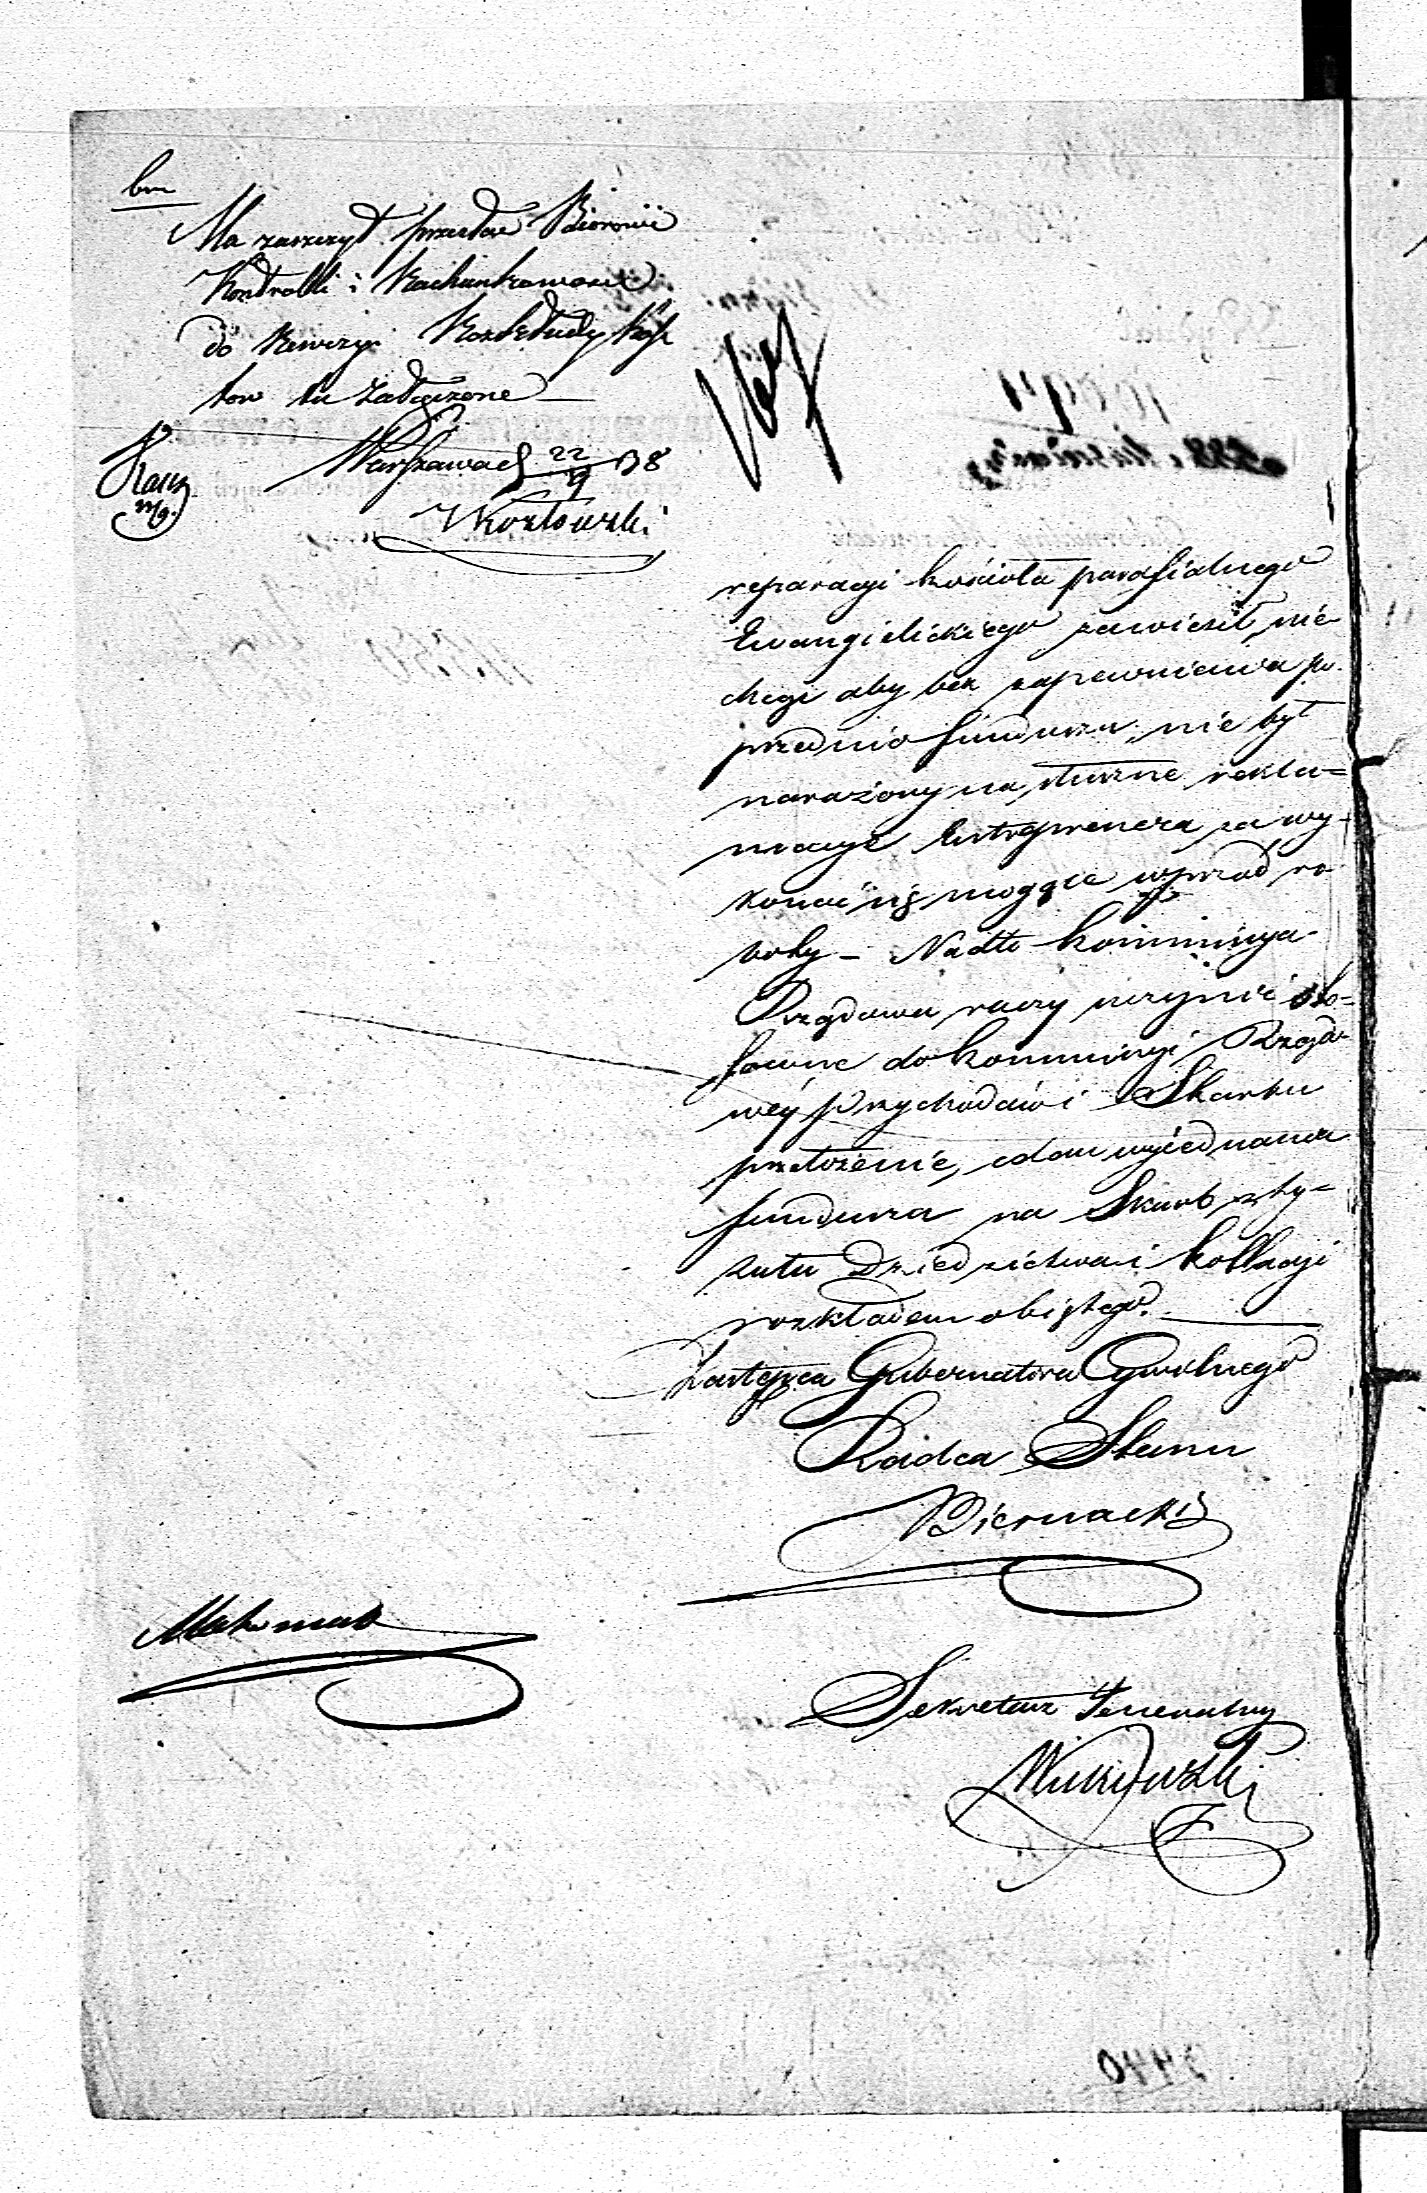 Ma zaszczyt przesłać Biorowi
Kontrolli i Rachunkowości
do Rewizyi Rozkłady Kosz
tow tu załączone
Warszawa d 22/9 38
Kozłowski
reparacyi kościoła parafialnego
Ewangielickiego zawiesił, nie
chcąc aby bez zapewnienia po
przednio funduszu, nie był
narażony na słuszne rekla=
macye Entreprenera za wy-
konać się mogące wprzód ro
boty – Nadto Kommissya
Rządowa raczy uczynić sto=
sowne do Kommissyi Rządo
wéy Przychodów i Skarbu
przełożenie, celem wyjednania
funduszu na Skarb z ty=
tułu Dziedzictwa i kollacyi
rozkładem objętego.
Zastępca Gubernatora Cywilnego
Radca Stanu
Biernacki
Sekretarz Jeneralny
3440